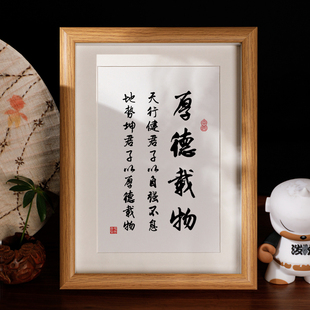 厚德载物
天行健君子以自强不息
地势坤君子以厚德载物